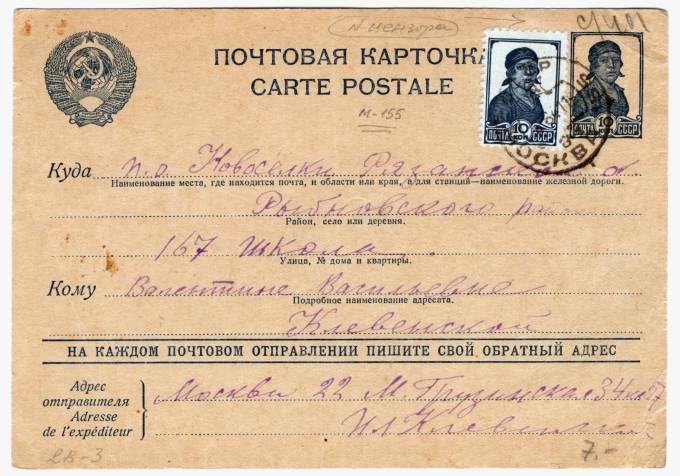 № цензора
С/401
ПОЧТОВАЯ КАРТОЧКА
CARTE POSTALE
М-155
ПОЧТА 10 КОП СССР
ПОЧТА 10 КОП СССР
МОСКВА
Куда п.о Новоселки Рязанской о.
Наименование места, где находится почта, и области или края, а для станций—наименование железной дороги.
Рыбновского район
Район, село или деревня.
167 школа
Улица, № дома и квартиры.
Кому Валентине Васильевне
Подробное наименование адресата.
Клевенской
НА КАЖДОМ ПОЧТОВОМ ОТПРАВЛЕНИИ ПИШИТЕ СВОЙ ОБРАТНЫЙ АДРЕС
Адрес отправителя
Adresse de l'expéditeur
Москва 22 М. Грузинская 34 кв 27
7.-